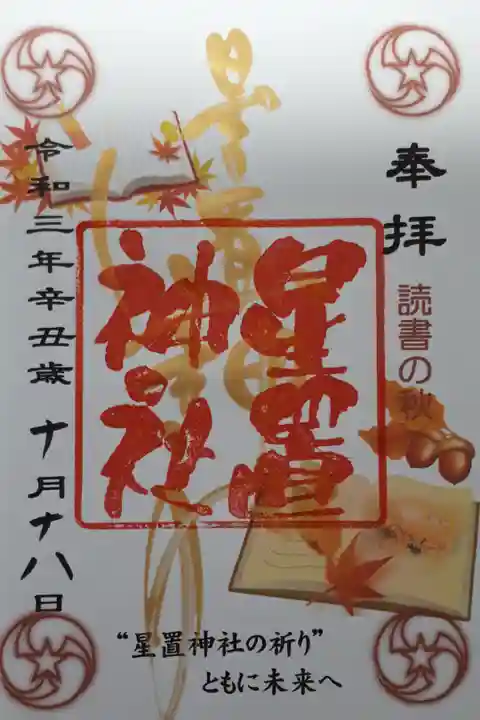 奉拝
読書の秋
星置神社
星置
神社
令和三年辛丑歳 十月十八日
“星置神社の祈り”
ともに未来へ